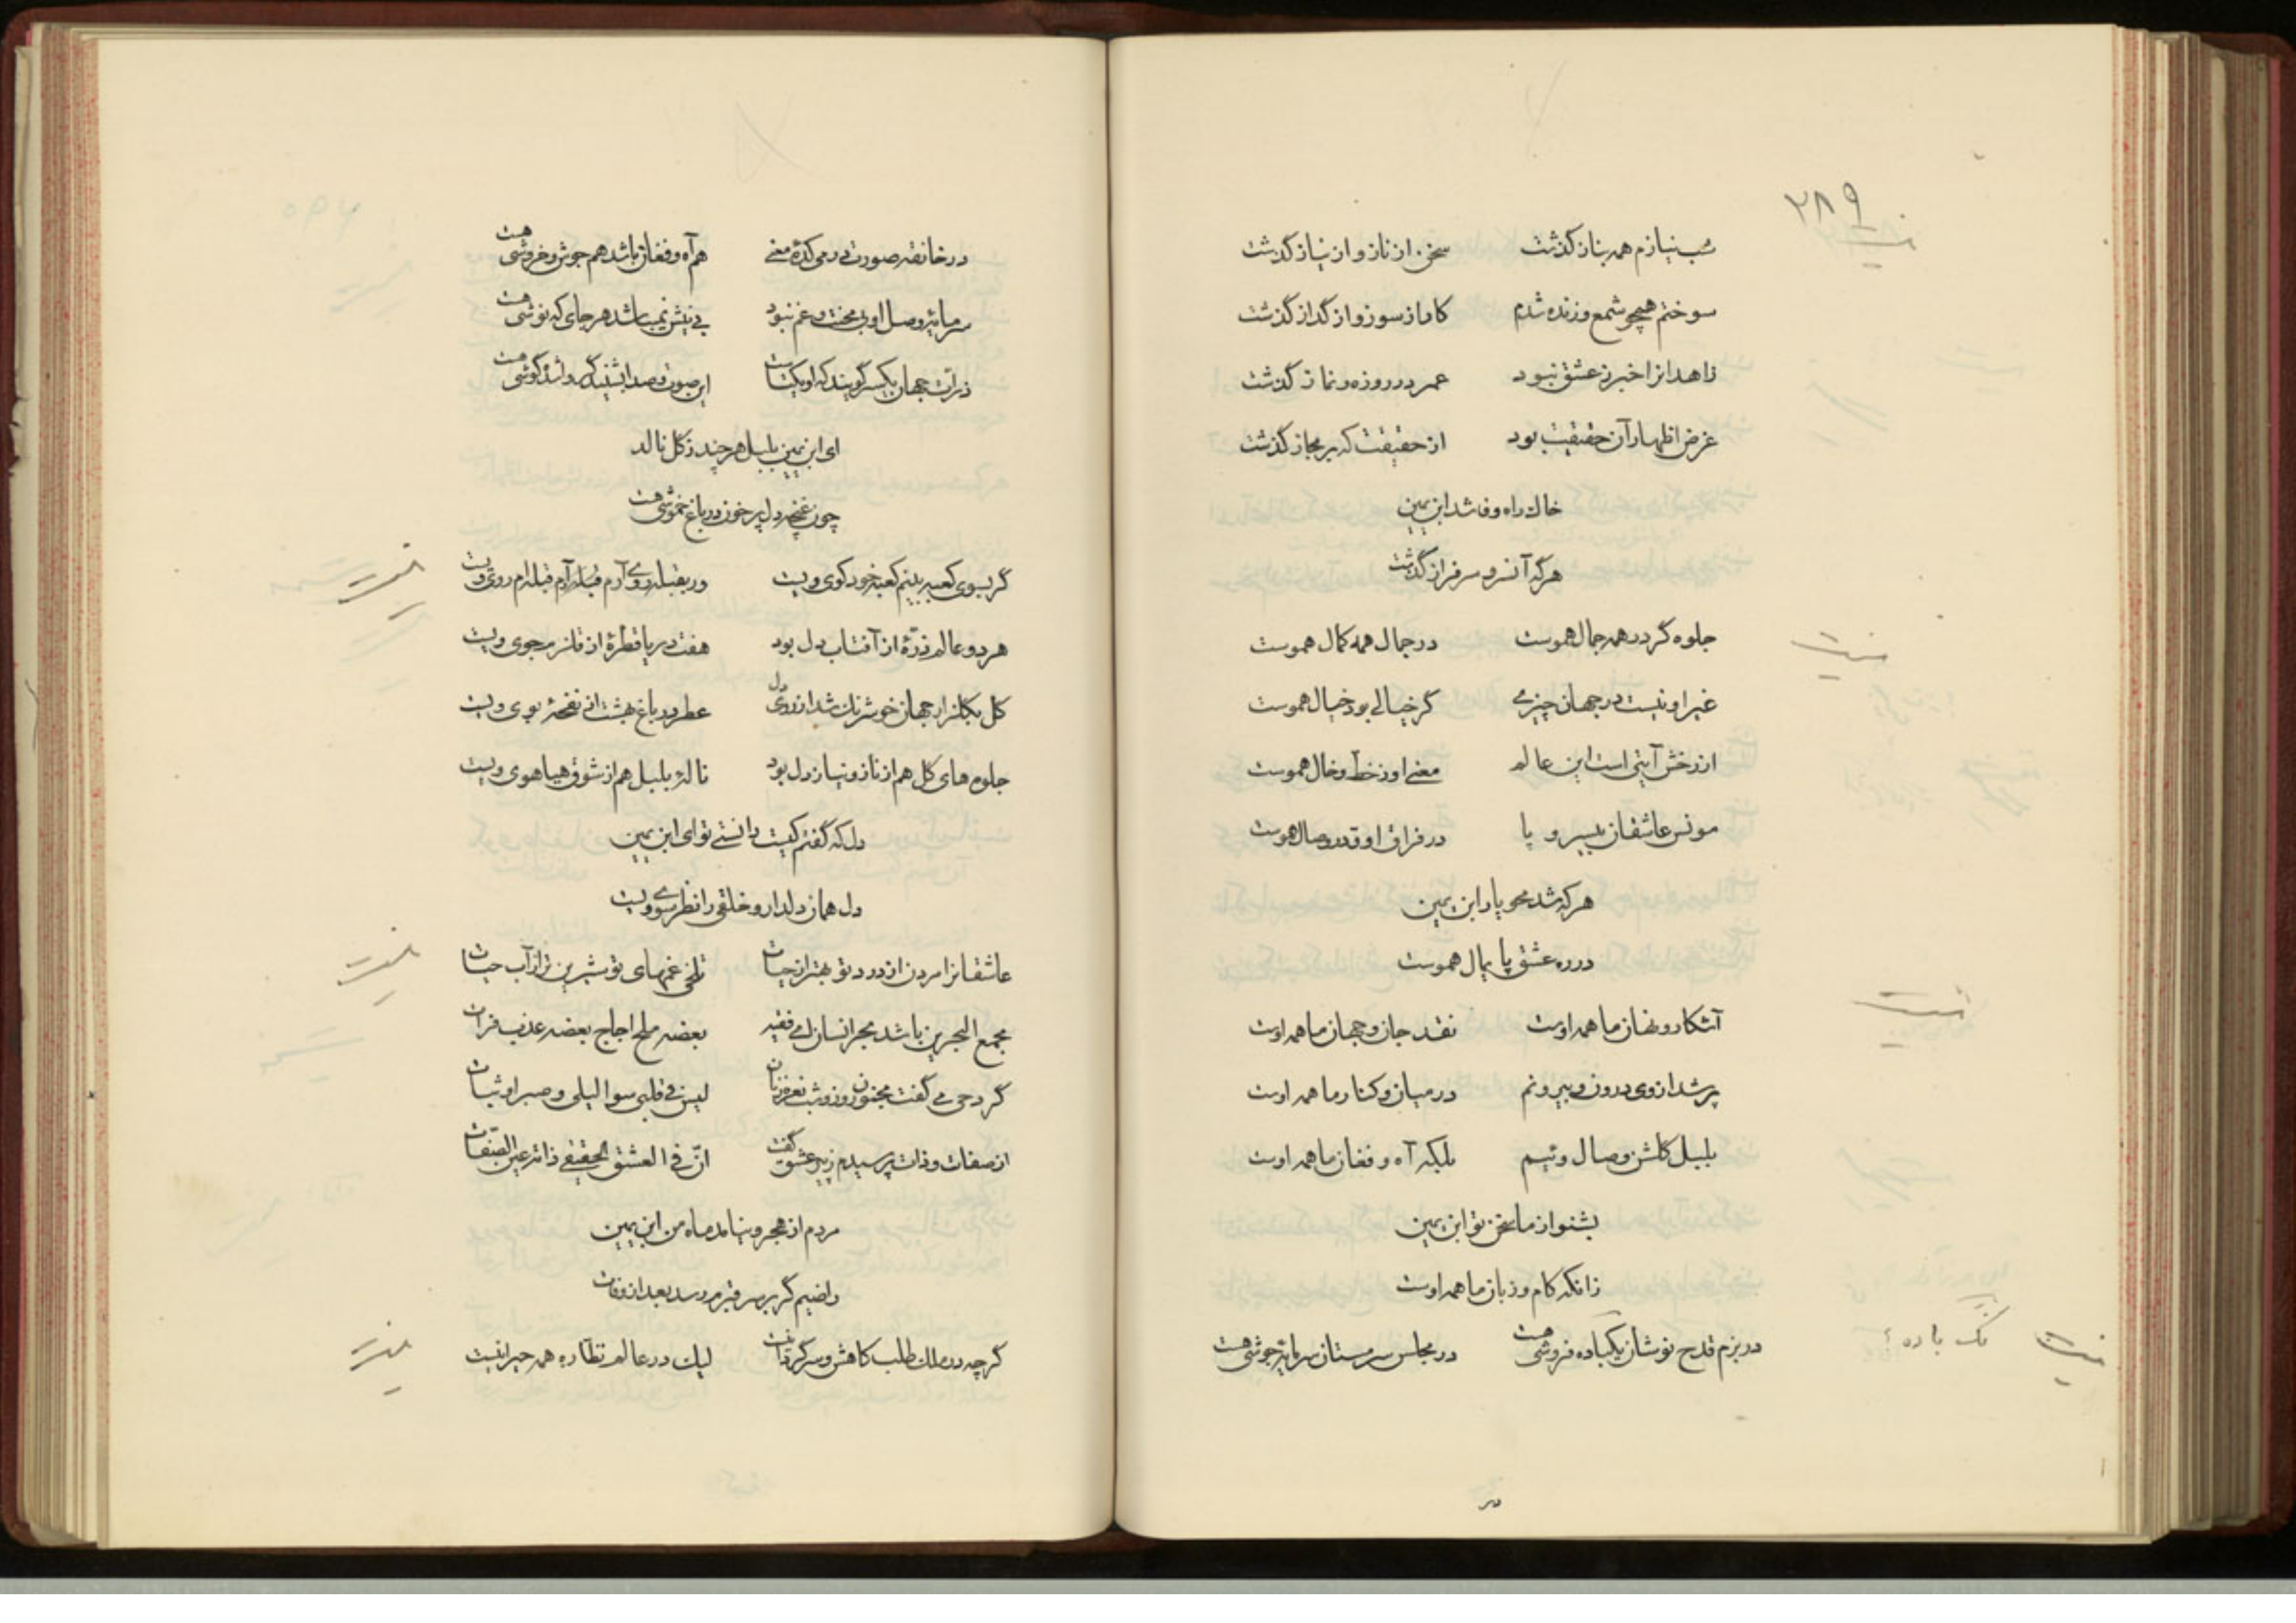 ۲۸۹
شب نیازم همه بناز گذشت سخن از ناز و از نیاز گذشت
سوختم همچو شمع و زنده شدم کار از سوز و از گداز گذشت
زاهدانرا خبر ز عشق نبود عمر در روزه و نماز گذشت
غرض اظهار آن حقیقت بود از حقیقت که بر مجاز گذشت
خاك راه وفا شد ابن یمین
هرکه آنسرو سرفراز گذشت
جلوه گر در همه جمال هموست در جمال همه کمال هموست
غیر او نیست در جهان چیزی گر خیالی بود خیال هموست
از رخش آیتی است این عالم معنی او ز خط و خال هموست
مونس عاشقان بیسر و پا در فراق او و در وصال هموست
هرکه شد محو یار ابن یمین
در ره عشق پایمال هموست
آشکار و نهان ما همه اوست نقد جان و جهان ما همه اوست
پر شد از وی درون و بیرونم در میان و کنار ما همه اوست
بلبل گلشن وصال وئیم بلکه آه و فغان ما همه اوست
بشنو از ما سخن تو ابن یمین
زانکه کام و زبان ما همه اوست
در بزم قدح نوشان یکباده فروشی هست در مجلس سرمستان سرمایهٔ جوشی هست
باده
در
در خانقه صورت در میکدهٔ معنی هم آه و فغان باشد هم جوش و خروشی هست
سرمایهٔ وصل او بی محنت و غم نبود بی نیش نمیباشد هر جای که نوشی هست
ذرات جهان یکسر گویند که او یکتاست این صوت و صدا بشنید گر
ای ابن یمین بلبل هر چند ز گل نالد
چون غنچه دل پر خون در باغ خموشی هست
گر بسوی کعبه بینم کعبه خود کوی ویست ور بقبله روی آرم قبله ام روی ویست
هر دو عالم ذرهٔ از آفتاب دل بود هفت دریا قطرهٔ از قلزم جوی ویست
گل بگلزار جهان خوشرنك شد از روی دل عطر در باغ بهشت از نفحهٔ بوی ویست
جلوه های گل هم از ناز و نیاز دل بود نالهٔ بلبل هم از شوق هیاهوی ویست
دل که گفتم کیست دانستی تو ای ابن یمین
دل همان دلدار و خلقی را نظر سوی ویست
عاشقانرا مردن از درد تو بهتر از حیات تلخی غمهای تو شیرین تر از آب حیات
مجمع البحرین باشد بحر انسان ای فقیه بعضه ملح اجاج بعضه عذب فرات
گرد حی می گفت مجنون روز و شب نعره زنان لیس فی قلبی سوا لیلی و صبر او ثبات
از صفات و ذات پرسیدم ز پیر عشق گفت ان فی العشق الحقیقی ذاته عین الصفات
مردم از هجر و نیامد ماه من ابن یمین
راضیم گر بر سر قبرم رسد بعد از وفات
گرچه در ملك طلب کاهش و سرگردانیست لیك در عالم نظاره همه حیرانیست